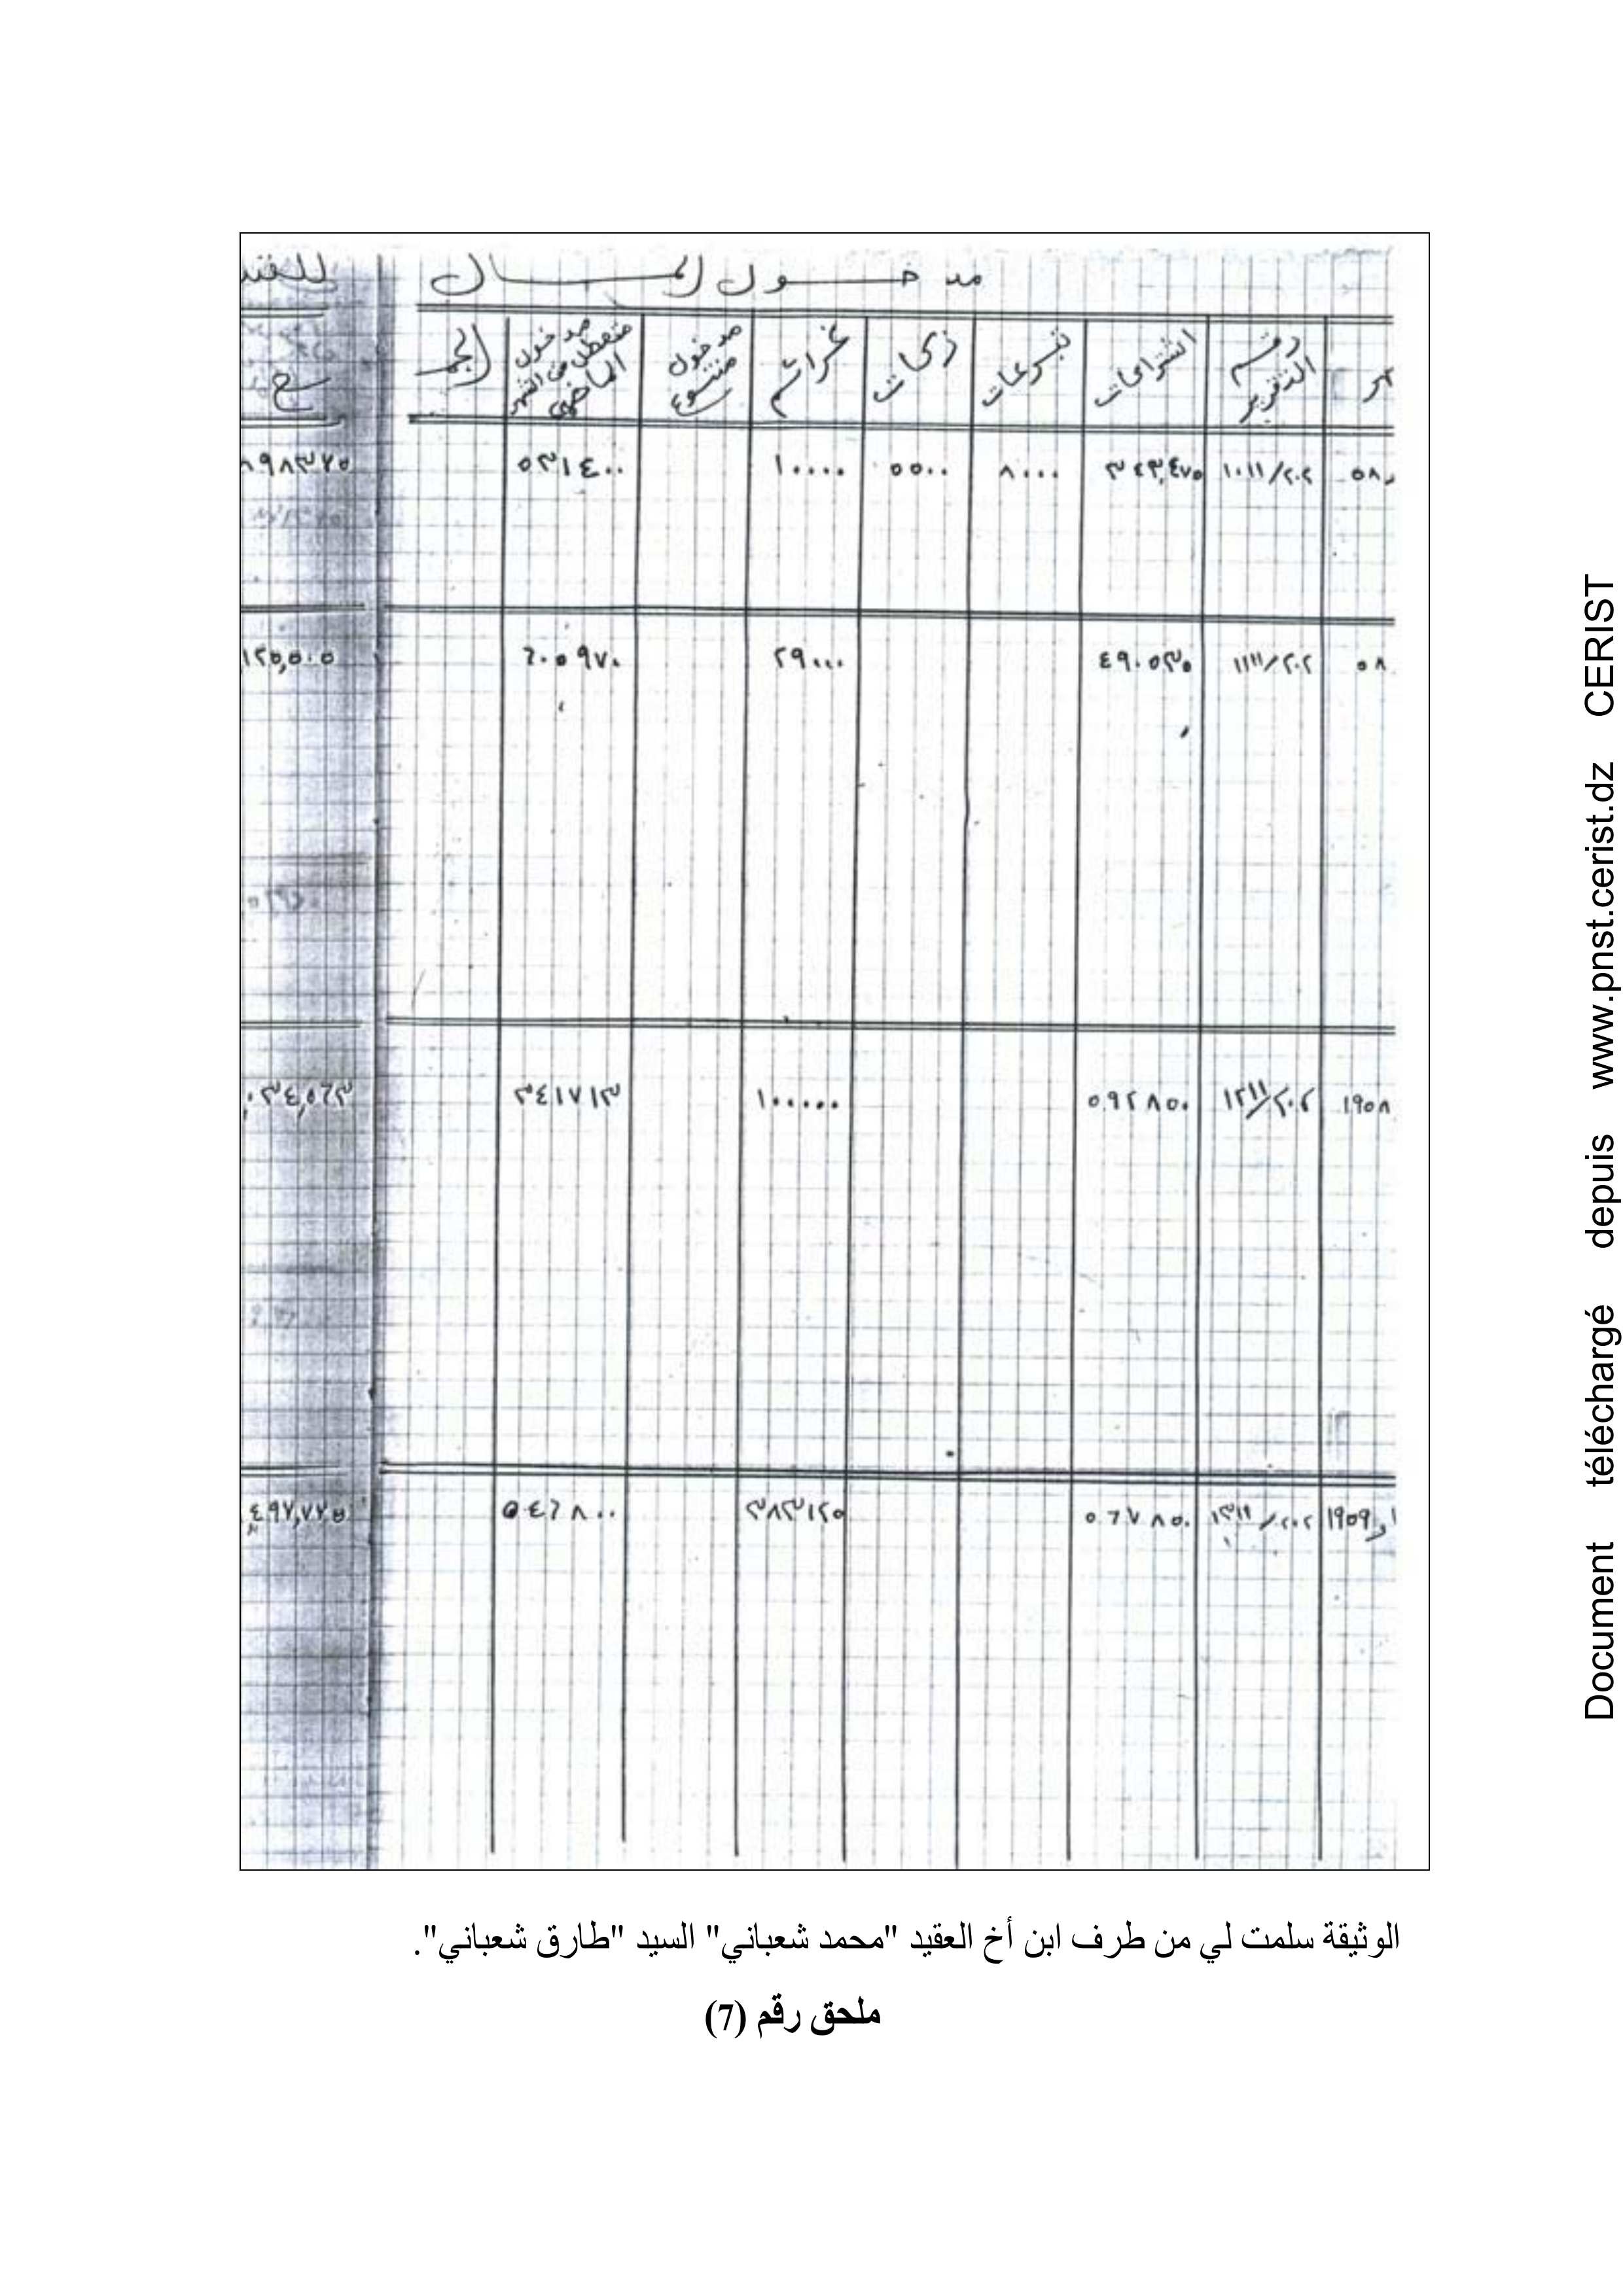 مدخول المال
رقم التقرير
اشتراكات
تبرعات
زكات
غرائم
مدخول متنوع
مدخول متعطل من الشهر الماضي
٥٨
١٠١١/٢٠٢
٨٠٠٠
٥٥٠٠
١٠٠٠٠
٥٣١٤٠٠
٥٨
١١١١/٢٠٢
٤٩٠٥٣٥
٢٩٠٠٠
٦٠٥٩٧٠
١٩٥٨
١٢١١/٢٠٢
٥٩٢٨٥٠
١٠٠٠٠٠
٣٤١٧١٣
١٩٥٩
١٣١١/٢٠٢
٥٦٧٨٥٠
٣٨٣١٢٥
٥٤٦٨٠٠
الوثيقة سلمت لي من طرف ابن أخ العقيد "محمد شعباني" السيد "طارق شعباني".
ملحق رقم (7)
Document téléchargé depuis www.pnst.cerist.dz CERIST